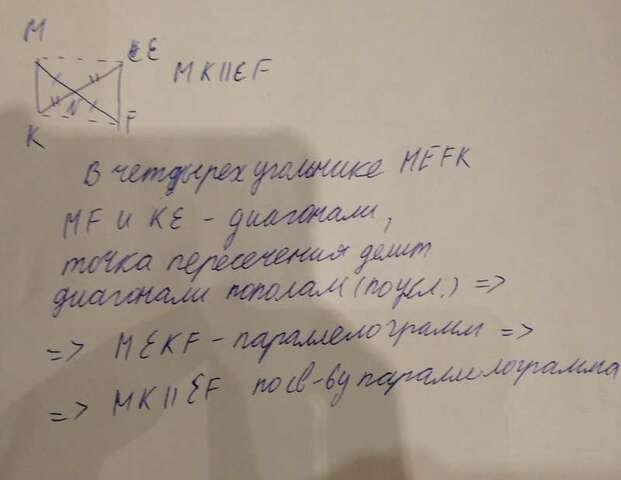 M
E
MK||EF
N
K
F
В четырехугольнике MEFK
MF и KE - диагонали,
точка пересечения делит
диагонали пополам (по усл.) =>
=> MEKF - параллелограмм =>
=> MK || EF по св-ву параллелограмма